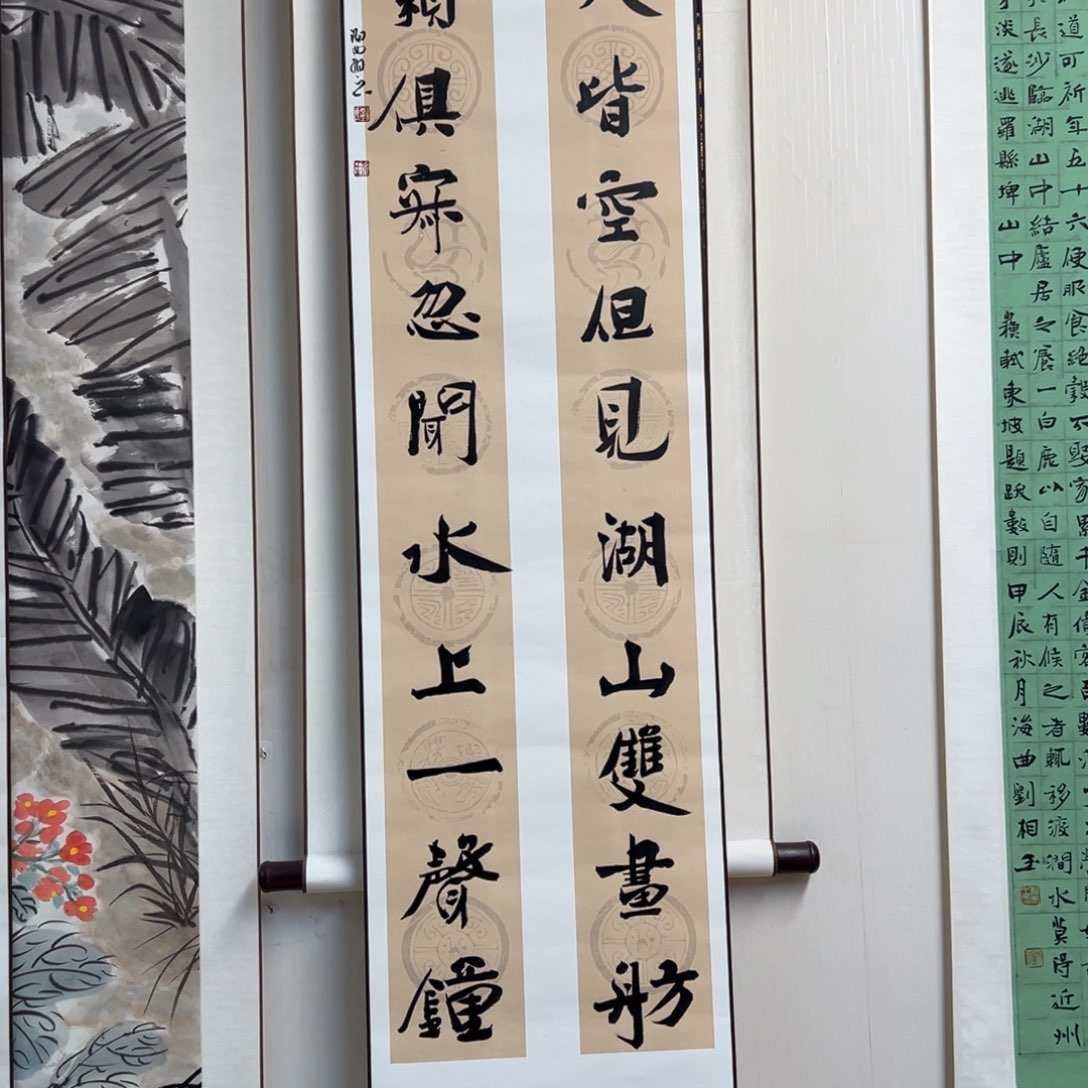 道可祈年五十六便服食絕穀
長沙臨湖山中結廬居之養一白鹿以自隨人有候之者輒移渡澗水莫得近州
淡遂逃羅縣埤山中 蘇軾東坡題跋數則甲辰秋月海曲劉相玉
皆空但見湖山雙畫舫
俱寂忽聞水上一聲鐘